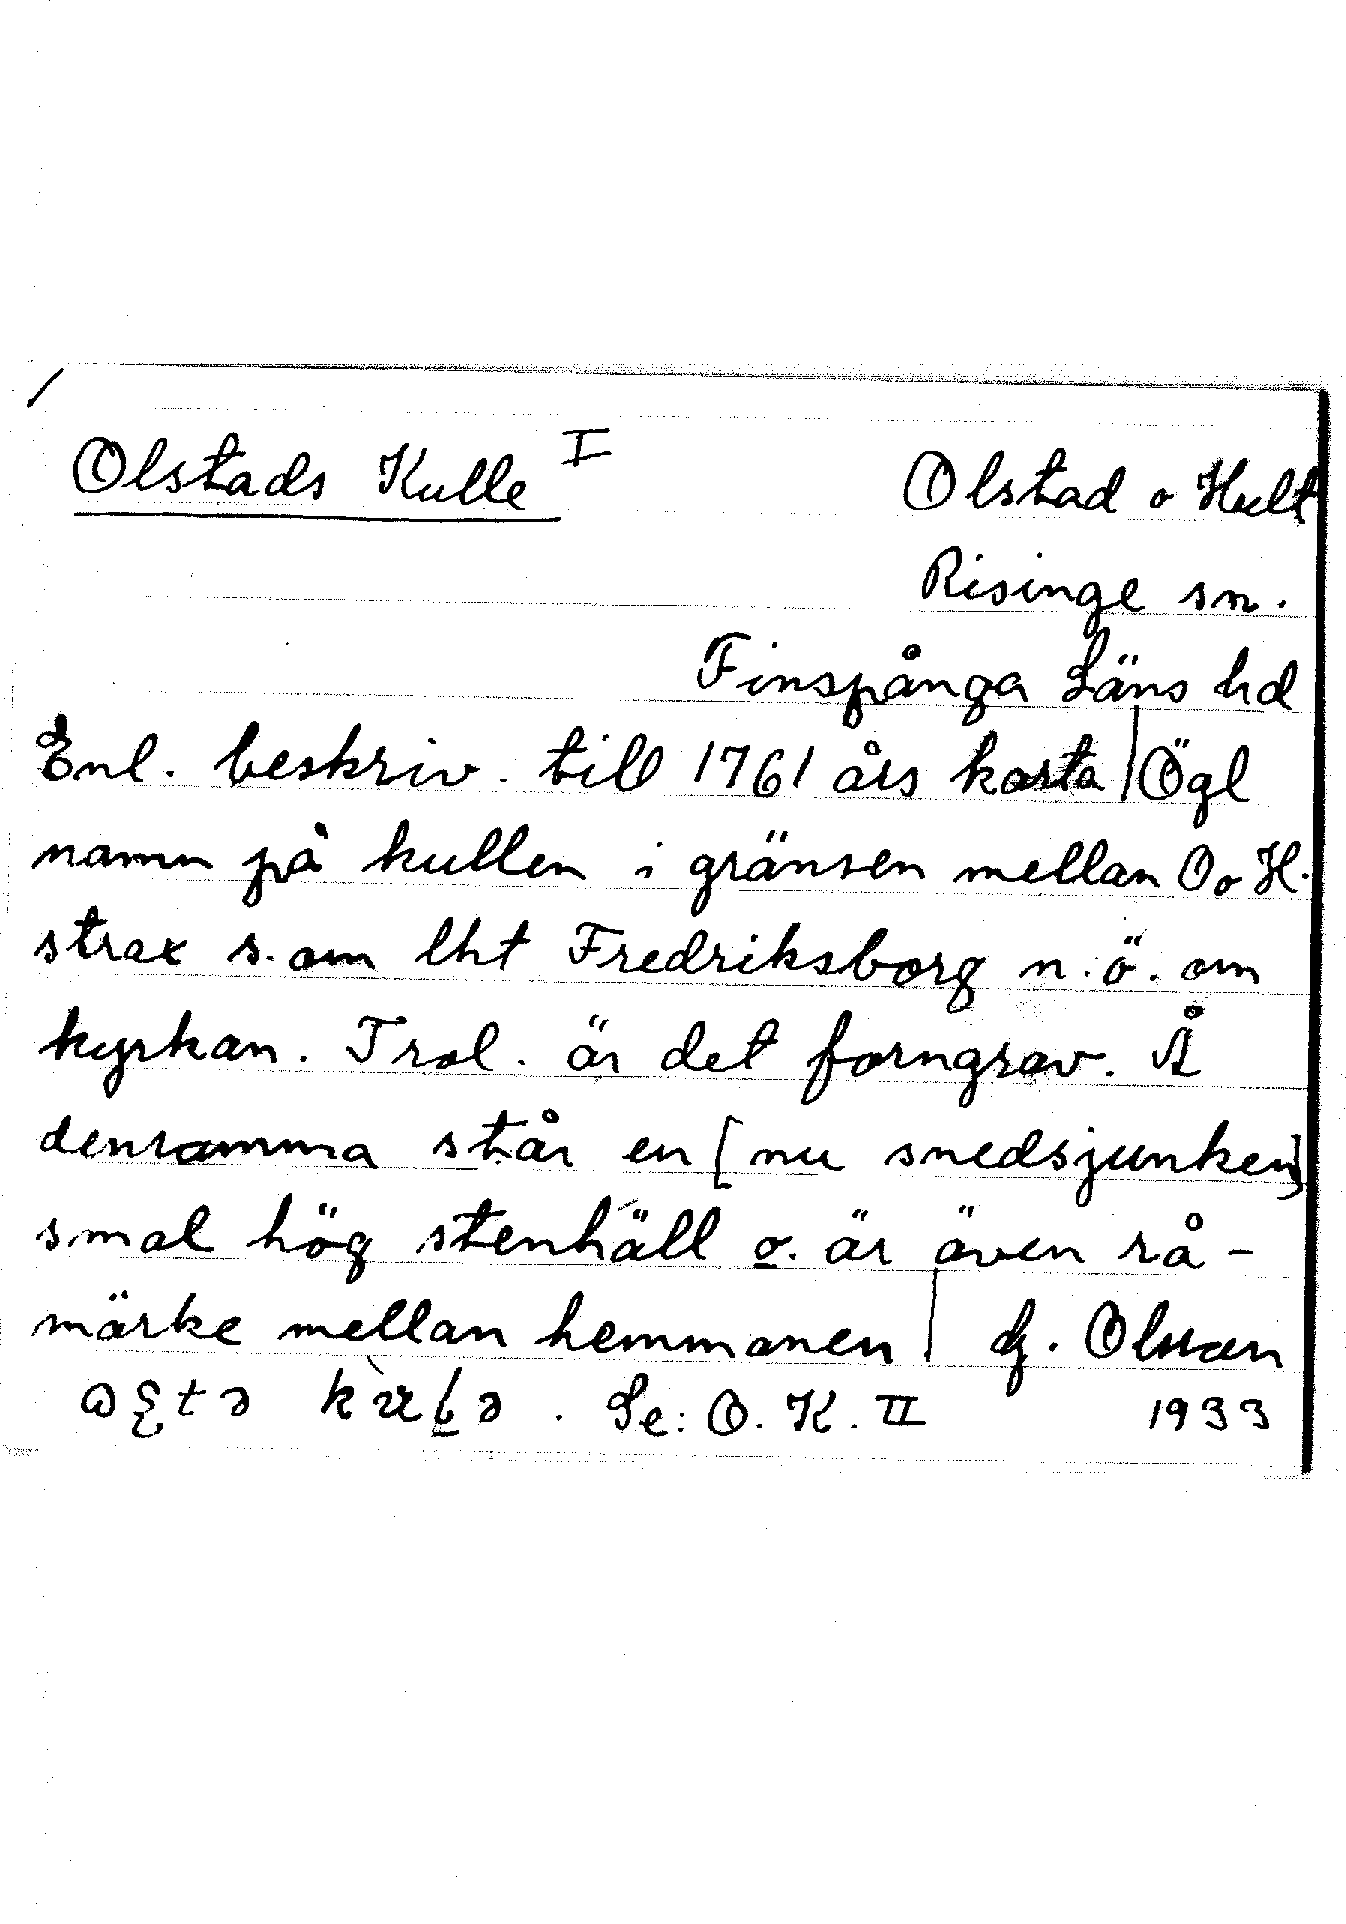 Olstads Kulle I
Olstad o Hult
Risinge sn.
Finspånga Läns hd
Ögl
Enl. beskriv. till 1761 års karta
namn på kullen i gränsen mellan O o H.
strax s. om lht Fredriksborg n.ö. om
kyrkan. Trol. är det forngrav. Å
densamma står en [nu snedsjunken]
smal hög stenhäll o. är även rå-
märke mellan hemmanen
Olsson
1933
Se: O. K. II